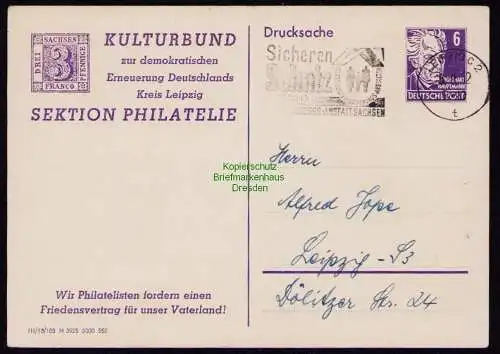 KULTURBUND
zur demokratischen
Erneuerung Deutschlands
Kreis Leipzig
SEKTION PHILATELIE
SACHSEN
DREI
3
PFENNIGE
FRANCO
Drucksache
Sicheren
Schutz
ANSTALT SACHSEN
6
GERHART
HAUPTMANN
DEUTSCHE POST
C2
t
Kopierschutz
Briefmarkenhaus
Dresden
Herrn
Alfred Jope
Leipzig-S3
Dölitzer Str. 24
Wir Philatelisten fordern einen
Friedensvertrag für unser Vaterland!